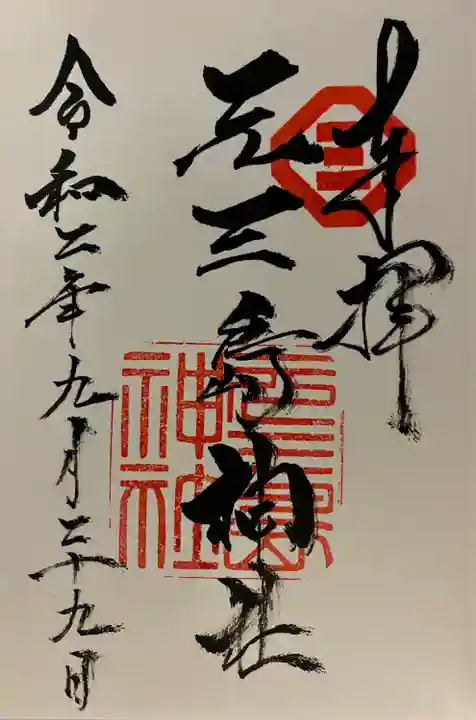 奉拝
三
元三島神社
元三島神社
令和二年九月二十九日